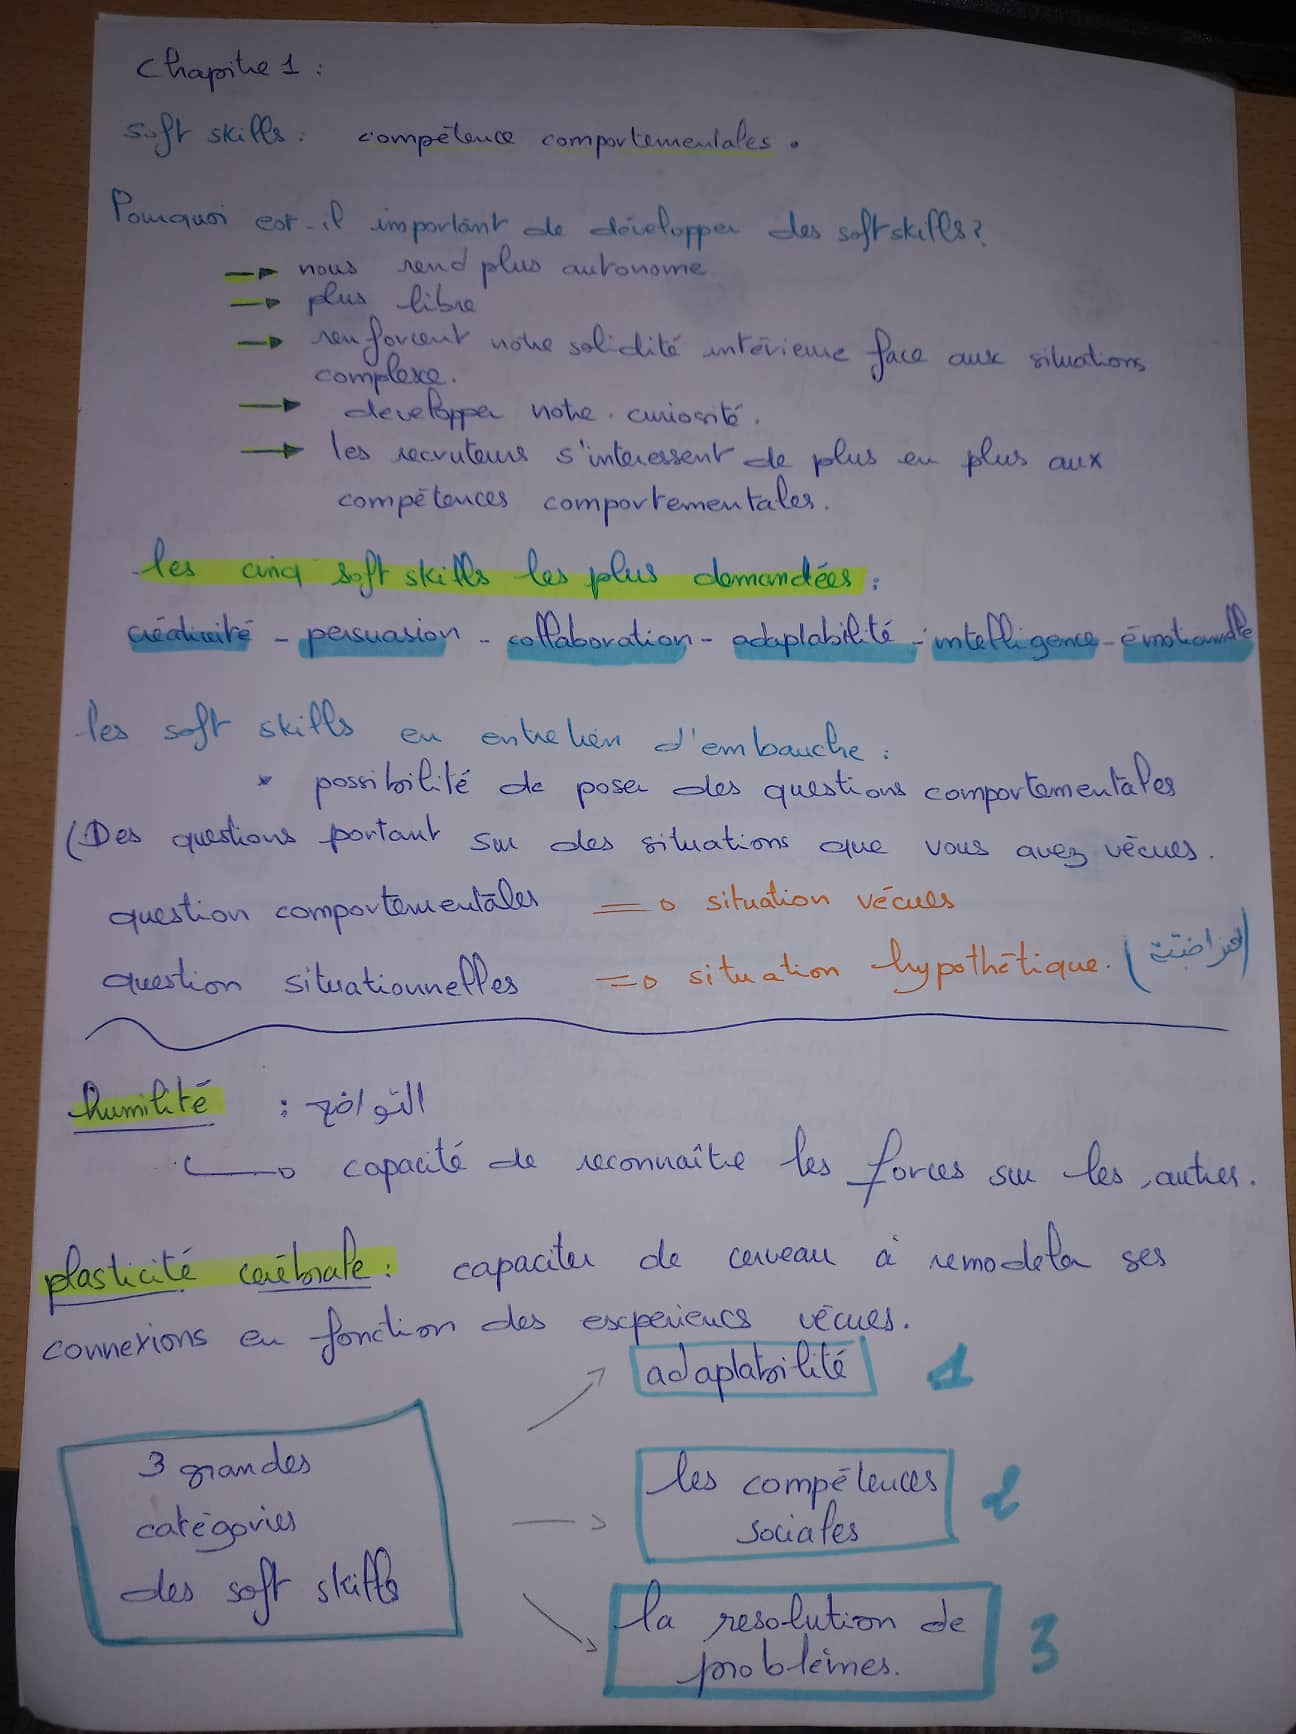 Chapitre 1 :
soft skills : compétence comportementales.
Pourquoi est-il important de développer des softskills ?
nous rend plus autonome
plus libre
renforcent notre solidité intérieure face aux situations
complexe.
developper notre curiosité.
les recruteurs s'interessent de plus en plus aux
compétences comportementales.
les cinq soft skills les plus demandées :
créativité - persuasion - collaboration - adaptabilité - intelligence - émotionnelle
les soft skills en entretien d'embauche :
* possibilité de poser des questions comportementales
(Des questions portant sur des situations que vous avez vécues.
question comportementales => situation vécues
question situationnelles => situation hypothétique. (افتراضية)
humilité : التواضع
capacité de reconnaître les forces sur les autres.
plasticité cérébrale : capaciter de cerveau à remodeler ses
connexions en fonction des expériencs vécues.
adaptabilité 1
3 grandes
catégories
des soft skills
les compétences
sociales 2
la resolution de
problèmes. 3